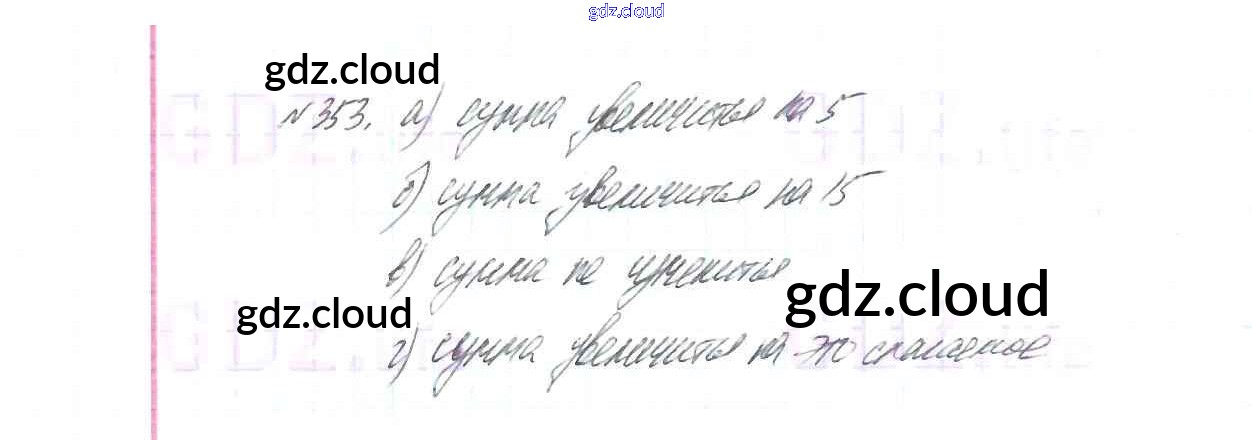 gdz.cloud
gdz.cloud
№353. а) сумма увеличится на 5
б) сумма увеличится на 15
в) сумма не изменится
gdz.cloud
gdz.cloud
г) сумма увеличится на это слагаемое